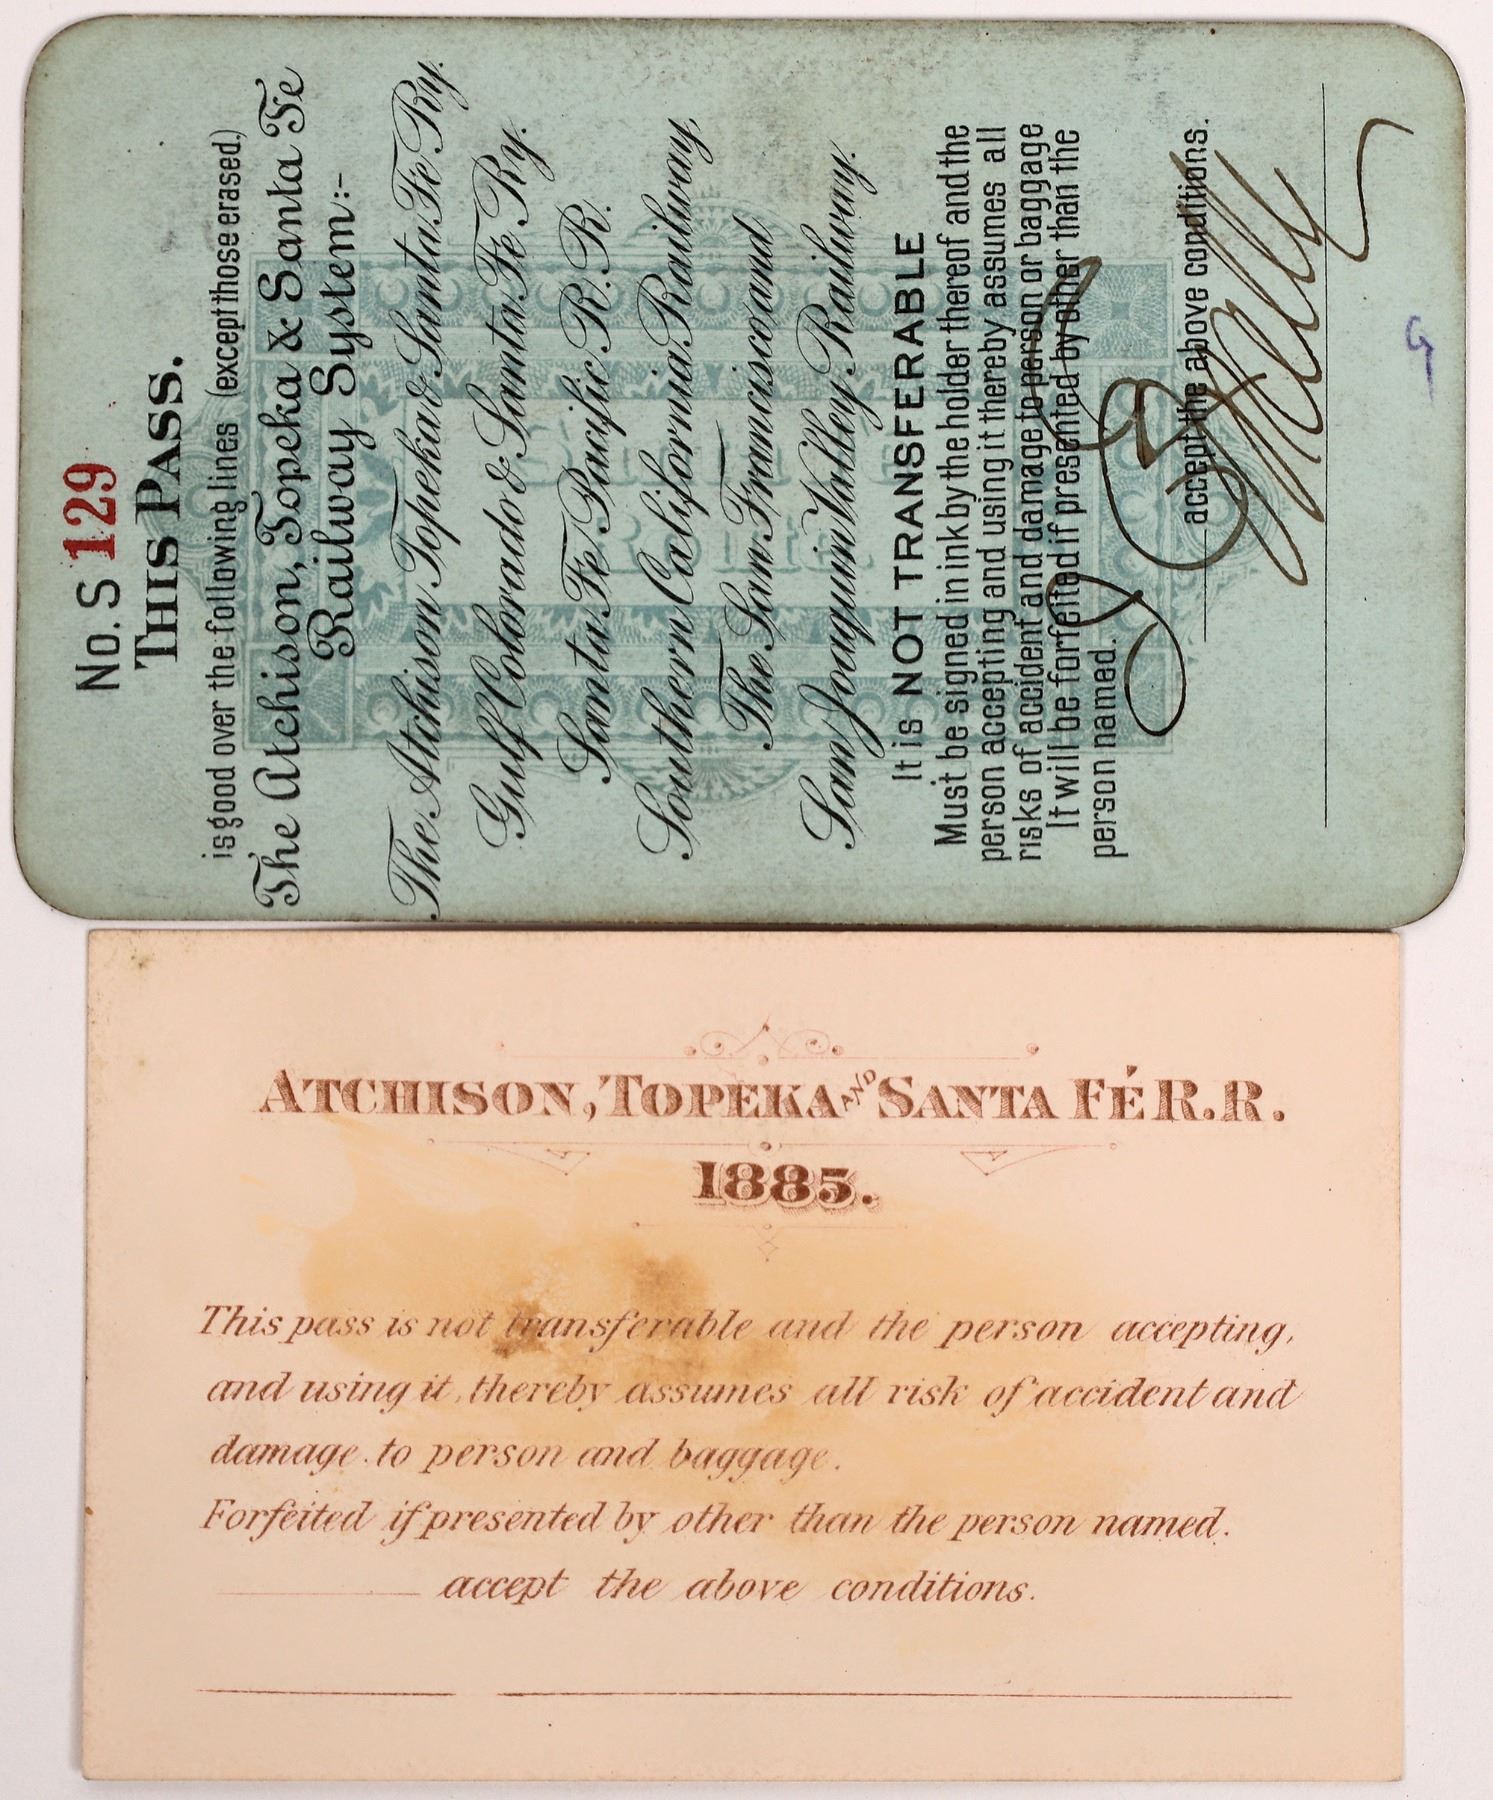 No. S 129
THIS PASS.
is good over the following lines (except those erased.)
The Atchison, Topeka & Santa Fe
Railway System:-
The Atchison Topeka & Santa Fe Ry.
Gulf Colorado & Santa Fe Ry.
Santa Fe Pacific R. R.
Southern California Railway,
The San Francisco and
San Joaquin Valley Railway.
It is NOT TRANSFERABLE
Must be signed in ink by the holder thereof and the
person accepting and using it thereby assumes all
risks of accident and damage to person or baggage
It will be forfeited if presented by other than the
person named.
accept the above conditions.
G
ATCHISON, TOPEKA AND SANTA FÉ R.R.
1885.
This pass is not transferable and the person accepting,
and using it, thereby assumes all risk of accident and
damage to person and baggage.
Forfeited if presented by other than the person named.
accept the above conditions.